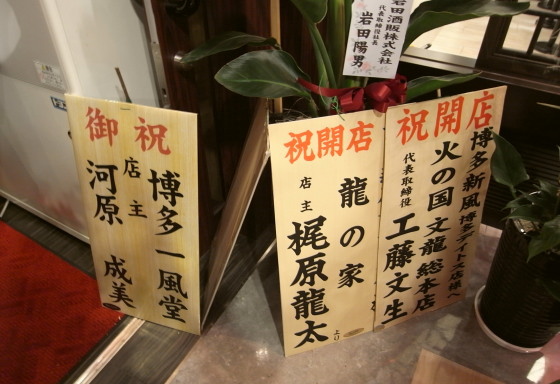 岩田酒販株式会社
代表取締役社長
岩田陽男
御祝
博多一風堂
店主
河原成美
祝開店
龍の家
店主
梶原龍太
より
祝開店
博多新風博多デイトス店様へ
火の国文龍総本店
代表取締役
工藤文生